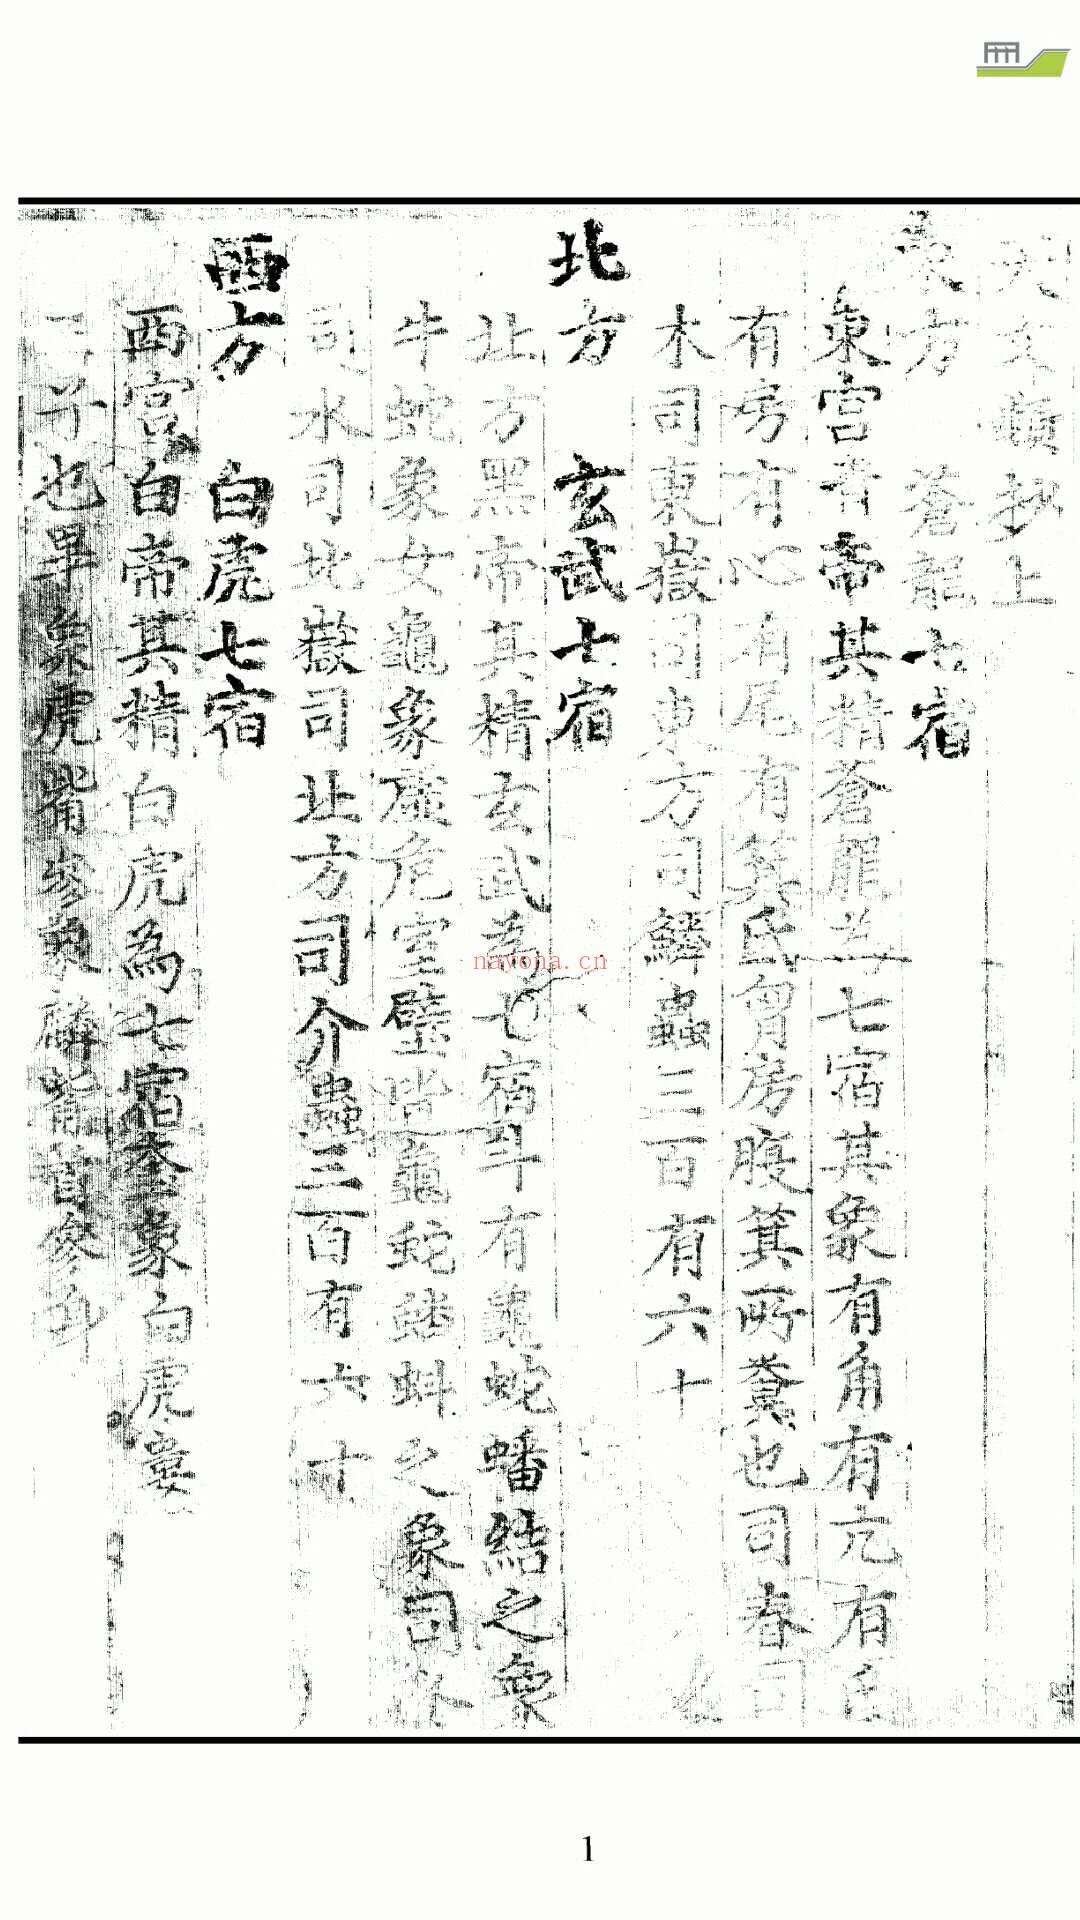 天文類抄上
東方 蒼龍七宿
東宮青帝其精蒼龍為七宿其象有角有亢有氐
有房有心有尾有箕氐胷房腹箕所糞也司春司
木司東嶽司東方司鱗蟲三百有六十
北方 玄武七宿
北方黑帝其精玄武為七宿斗有龜蛇蟠結之象
牛蛇象女龜象虛危室壁皆龜蛇蟠虯之象司冬
司水司北嶽司北方司介蟲三百有六十
西方 白虎七宿
西宮白帝其精白虎為七宿奎象白虎婁
子也畢象虎觜參象麟觜首參身
nayona.cn
1